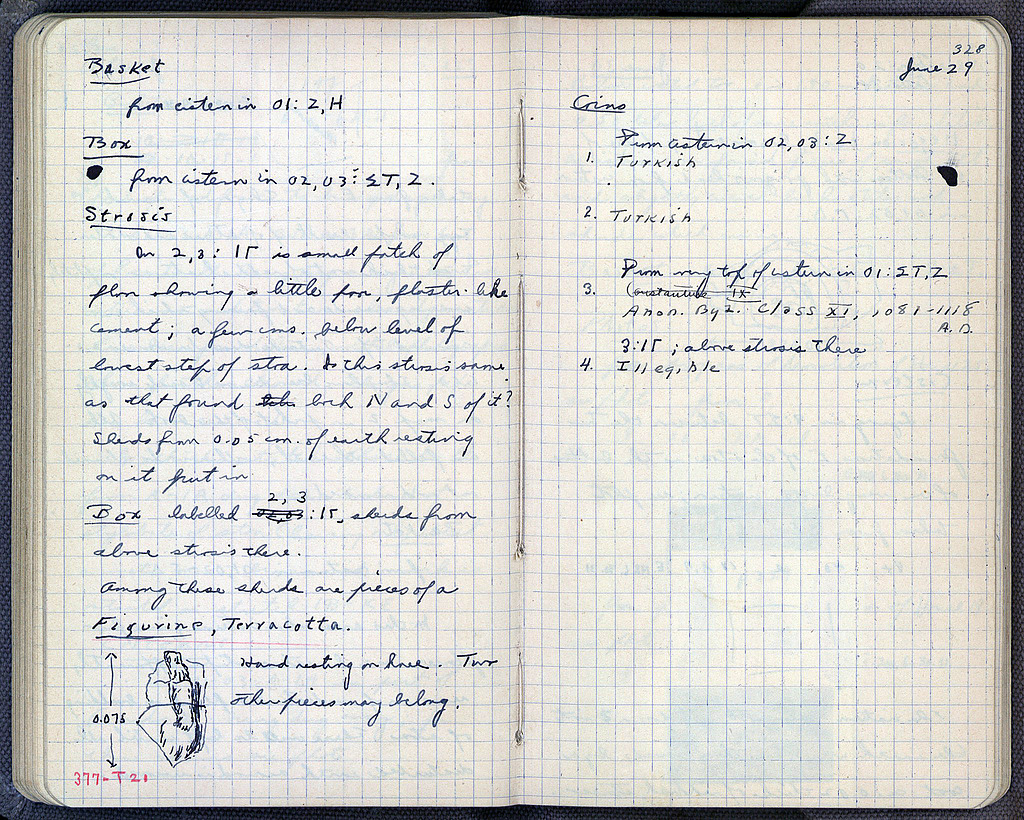 Basket
from cistern in 01: Z, H
Box
from cistern in 02, 03: ΣT, Z.
Strosis
In 2, 3: IΓ is small patch of
floor showing a little poor, plaster-like
cement; a few cms. below level of
lowest step of stoa. Is this strosis same
as that found both N and S of it?
Sherds from 0.05 cm. of earth resting
on it put in
2, 3
Box labelled 02,03: IΓ, sherds from
above strosis there.
Among these sherds are pieces of a
Figurine, Terracotta.
Hand resting on knee. Two
other pieces may belong.
0.075
377-T21
328
June 29
Coins
From cistern in 02, 03: Z
1. Turkish
2. Turkish
From very top of cistern in 01: ΣT, Z
3. Constantine IX
Anon. Byz. Class XI, 1081-1118
A.D.
3: IΓ; above strosis there
4. Illegible